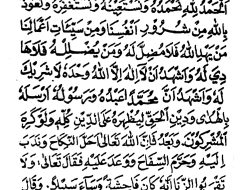 الحمد لله نحمده ونستعينه ونستغفره ونعوذ
بالله من شرور انفسنا ومن سيئات اعمالنا
من يهد الله فلا مضل له ومن يضلله فلا ها
دي له واشهد ان لا اله الا الله وحده لا شريك
له واشهد ان محمدا عبده ورسوله ارسله
بالهدى ودين الحق ليظهره على الدين كله ولو كره
المشركون وبعد فان الله تعالى احل النكاح وندب
اليه وحرم السفاح ووعد عليه فقال تعالى ولا
تقربوا الزنا انه كان فاحشة وساء سبيلا وقال